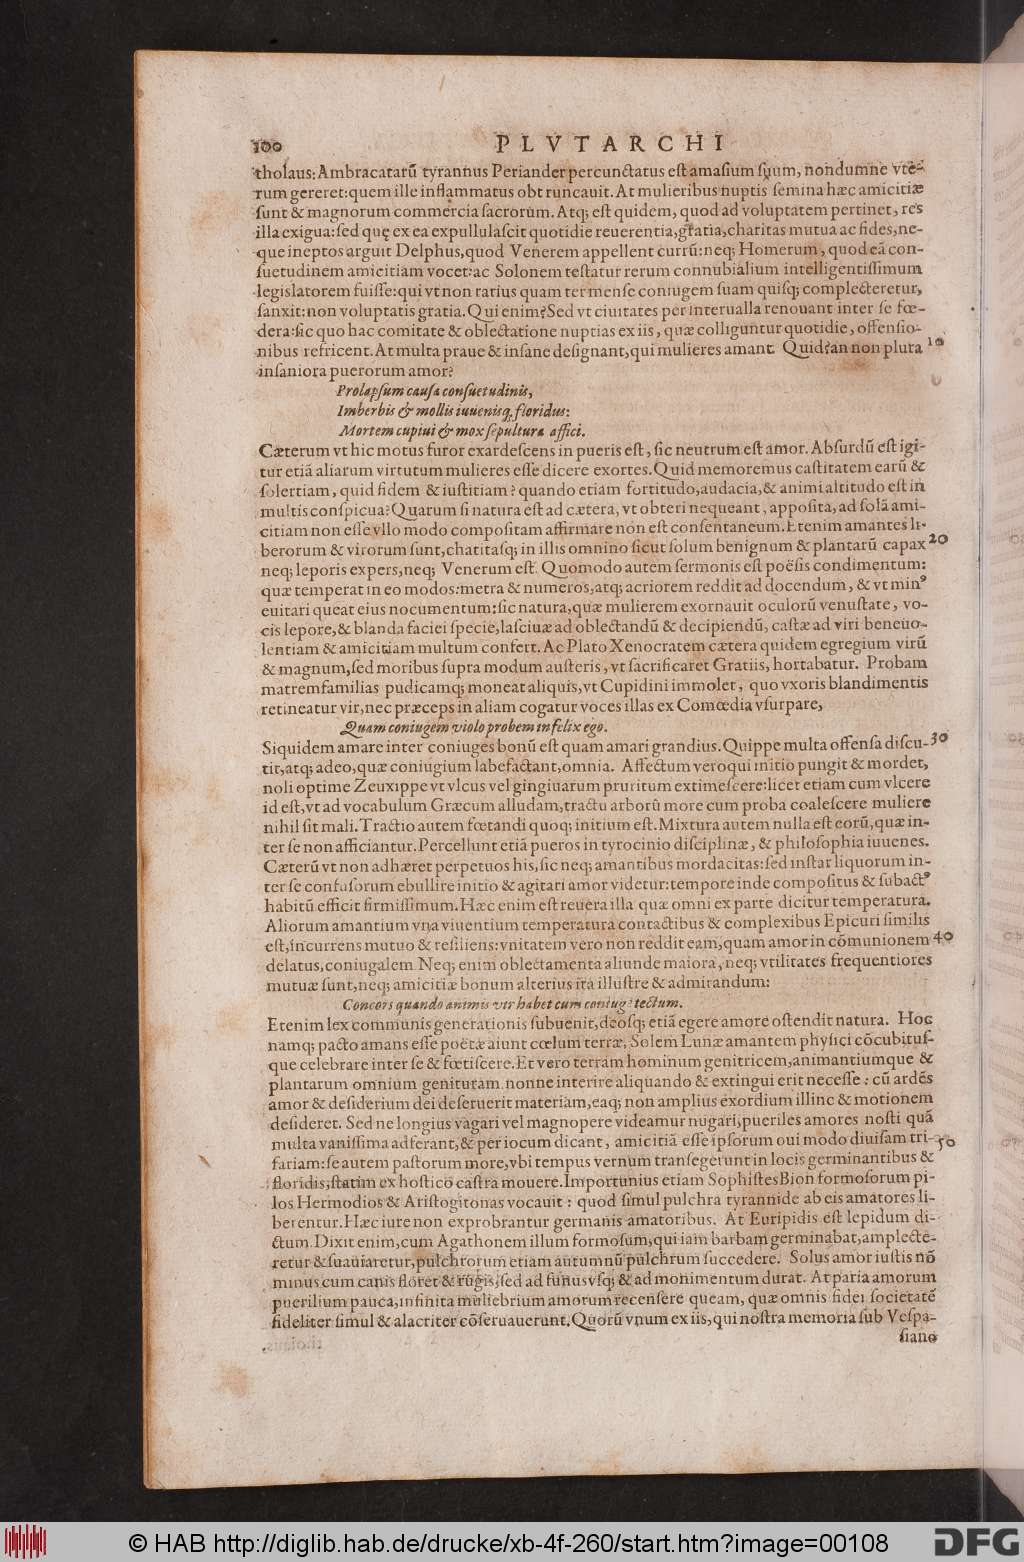 100 PLVTARCHI
tholaus: Ambracatarũ tyrannus Periander percunctatus est amasium suum, nondumne vte-
rum gereret: quem ille inflammatus obtruncauit. At mulieribus nuptis semina hæc amicitiæ
sunt & magnorum commercia sacrorum. Atq; est quidem, quod ad voluptatem pertinet, res
illa exigua: sed quę ex ea expullulascit quotidie reuerentia, gratia, charitas mutua ac fides, ne-
que ineptos arguit Delphus, quod Venerem appellent currũ: neq; Homerum, quod eã con-
suetudinem amicitiam vocet: ac Solonem testatur rerum connubialium intelligentissimum
legislatorem fuisse: qui vt non rarius quam ter mense coniugem suam quisq; complecteretur,
sanxit: non voluptatis gratia. Qui enim? Sed vt ciuitates per interualla renouant inter se fœ-
dera: sic quo hac comitate & oblectatione nuptias ex iis, quæ colliguntur quotidie, offensio-
nibus refricent. At multa praue & insane designant, qui mulieres amant. Quid? an non plura 10
insaniora puerorum amor?
Prolapsum causa consuetudinis,
Imberbis & mollis iuuenisq; floridus:
Mortem cupiui & mox sepultura affici.
Cæterum vt hic motus furor exardescens in pueris est, sic neutrum est amor. Absurdũ est igi-
tur etiã aliarum virtutum mulieres esse dicere exortes. Quid memoremus castitatem earũ &
solertiam, quid fidem & iustitiam? quando etiam fortitudo, audacia, & animi altitudo est in
multis conspicua? Quarum si natura est ad cætera, vt obteri nequeant, apposita, ad solã ami-
citiam non esse vllo modo compositam affirmare non est consentaneum. Etenim amantes li-
berorum & virorum sunt, charitasq; in illis omnino sicut solum benignum & plantarũ capax 20
neq; leporis expers, neq; Venerum est. Quomodo autem sermonis est poësis condimentum:
quæ temperat in eo modos: metra & numeros, atq; acriorem reddit ad docendum, & vt minꝰ
euitari queat eius nocumentum: sic natura, quæ mulierem exornauit oculorũ venustate, vo-
cis lepore, & blanda faciei specie, lasciuæ ad oblectandũ & decipiendũ, castæ ad viri beneuo-
lentiam & amicitiam multum confert. Ac Plato Xenocratem cætera quidem egregium virũ
& magnum, sed moribus supra modum austeris, vt sacrificaret Gratiis, hortabatur. Probam
matremfamilias pudicamq; moneat aliquis, vt Cupidini immolet, quo vxoris blandimentis
retineatur vir, nec præceps in aliam cogatur voces illas ex Comœdia vsurpare,
Quam coniugem violo probem infelix ego.
Siquidem amare inter coniuges bonũ est quam amari grandius. Quippe multa offensa discu- 30
tit, atq; adeo, quæ coniugium labefactant, omnia. Affectum vero qui initio pungit & mordet,
noli optime Zeuxippe vt vlcus vel gingiuarum pruritum extimescere: licet etiam cum vlcere
id est, vt ad vocabulum Græcum alludam, tractu arborũ more cum proba coalescere muliere
nihil sit mali. Tractio autem fœtandi quoq; initium est. Mixtura autem nulla est eorũ, quæ in-
ter se non afficiantur. Percellunt etiã pueros in tyrocinio disciplinæ, & philosophia iuuenes.
Cæterũ vt non adhæret perpetuos his, sic neq; amantibus mordacitas: sed instar liquorum in-
ter se confusorum ebullire initio & agitari amor videtur: tempore inde compositus & subactꝰ
habitũ efficit firmissimum. Hæc enim est reuera illa quæ omni ex parte dicitur temperatura.
Aliorum amantium vna viuentium temperatura contactibus & complexibus Epicuri similis
est, incurrens mutuo & resiliens: vnitatem vero non reddit eam, quam amor in cõmunionem 40
delatus, coniugalem. Neq; enim oblectamenta aliunde maiora, neq; vtilitates frequentiores
mutuæ sunt, neq; amicitiæ bonum alterius ita illustre & admirandum:
Concors quando animis vir habet cum coniuge tectum.
Etenim lex communis generationis subuenit, deosq; etiã egere amore ostendit natura. Hoc
namq; pacto amans esse poëtæ aiunt cœlum terræ, Solem Lunæ amantem physici cõcubitus-
que celebrare inter se & fœtiscere. Et vero terram hominum genitricem, animantiumque &
plantarum omnium genituram nonne interire aliquando & extingui erit necesse: cũ ardẽs
amor & desiderium dei deseruerit materiam, eaq; non amplius exordium illinc & motionem
desideret. Sed ne longius vagari vel magnopere videamur nugari, pueriles amores nosti quã
multa vanissima adferant, & per iocum dicant, amicitiã esse ipsorum oui modo diuisam tri- 50
fariam: se autem pastorum more, vbi tempus vernum transegerunt in locis germinantibus &
floridis, statim ex hostico castra mouere. Importunius etiam Sophistes Bion formosorum pi-
los Hermodios & Aristogitonas vocauit: quod simul pulchra tyrannide ab eis amatores li-
berentur. Hæc iure non exprobrantur germanis amatoribus. At Euripidis est lepidum di-
ctum. Dixit enim, cum Agathonem illum formosum, qui iam barbam germinabat, amplecte-
retur & suauiaretur, pulchrorum etiam autumnũ pulchrum succedere. Solus amor iustis nõ
minus cum canis floret & rugis, sed ad funus vsq; & ad monimentum durat. At paria amorum
puerilium pauca, infinita muliebrium amorum recensere queam, quæ omnis fidei societatẽ
fideliter simul & alacriter cõseruauerunt. Quorũ vnum ex iis, qui nostra memoria sub Vespa-
siano
© HAB http://diglib.hab.de/drucke/xb-4f-260/start.htm?image=00108 DFG